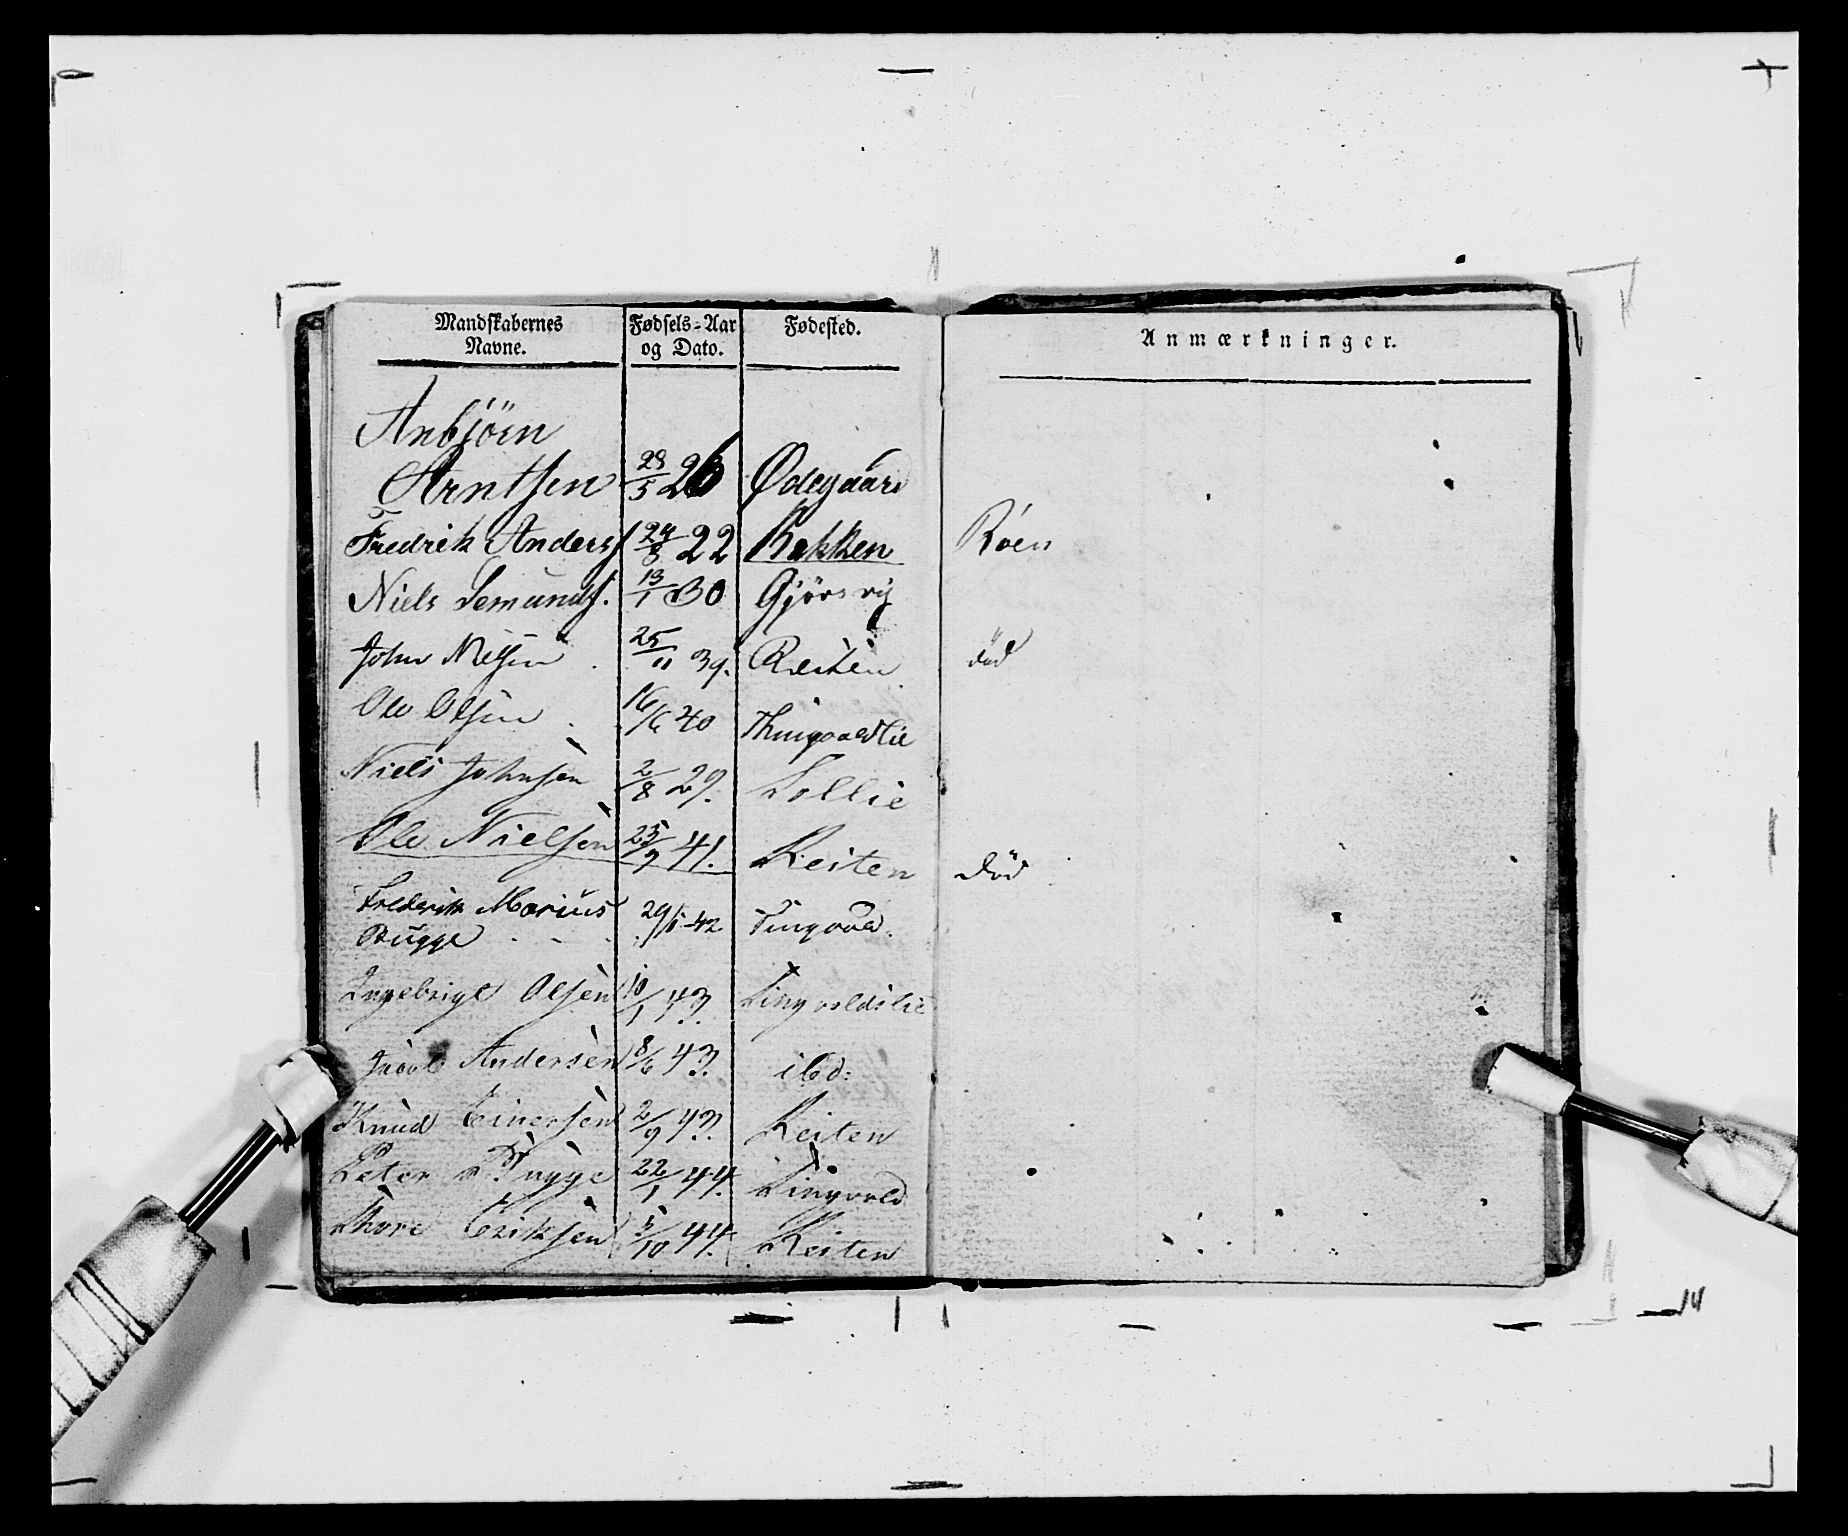 Mandskabernes Navne. Fødsels-Aar og Dato. Fødested. Anmærkninger.
Anbjörn
Arntsen 28/5 26 Ødegaard
Fredrik Anders 24/8 22 Bakken Röen
Niels Semunds. 13/1 30 Gjörsvig
John Nilsen 25/11 39. Reiten död
Ole Olsen 16/6 40 Thingvoldlie
Niels Johnsen 2/8 29. Sollie
Ole Nielsen 25/9 41. Reiten död
Frederik Marius
Bugge 29/1 42 Tingvold.
Ingebrigt Olsen 10/1 43. Tingvoldslie
Jacob Andersen 8/6 43. ibd:
Knud Einersen 2/9 43. Reiten
Peter Bugge 22/1 44. Tingvold
Thore Eriksen 5/10 44. Reiten
14